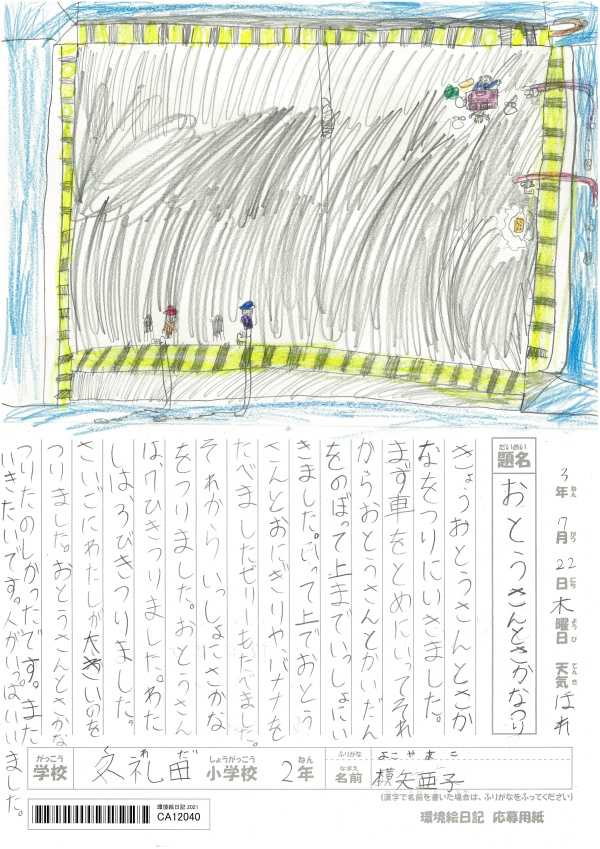 3年 7月 22日 木曜日 天気 はれ
ねん がつ にち ようび てんき
だいめい
題名 おとうさんとさかなつり
きょうおとうさんとさか
なをつりにいきました。
まず車をとめにいってそれ
からおとうさんとかいだん
をのぼって上までいっしょにい
きました。いって上でおとう
さんとおにぎりや、バナナを
たべましたゼリーもたべました。
それからいっしょにさかな
をつりました。おとうさん
は、7ひきつりました。わた
しは、3びきつりました。
さいごにわたしが大きいのを
つりました。おとうさんとさかな
つりたのしかったです。また
いきたいです。人がいっぱいいました。
がっこう れだ しょうがっこう ねん ふりがな よこや あこ
学校 久礼田 小学校 2年 なまえ 名前 横矢亜子
(漢字で名前を書いた場合は、ふりがなをふってください)
環境絵日記 2021
CA12040
環境絵日記 応募用紙